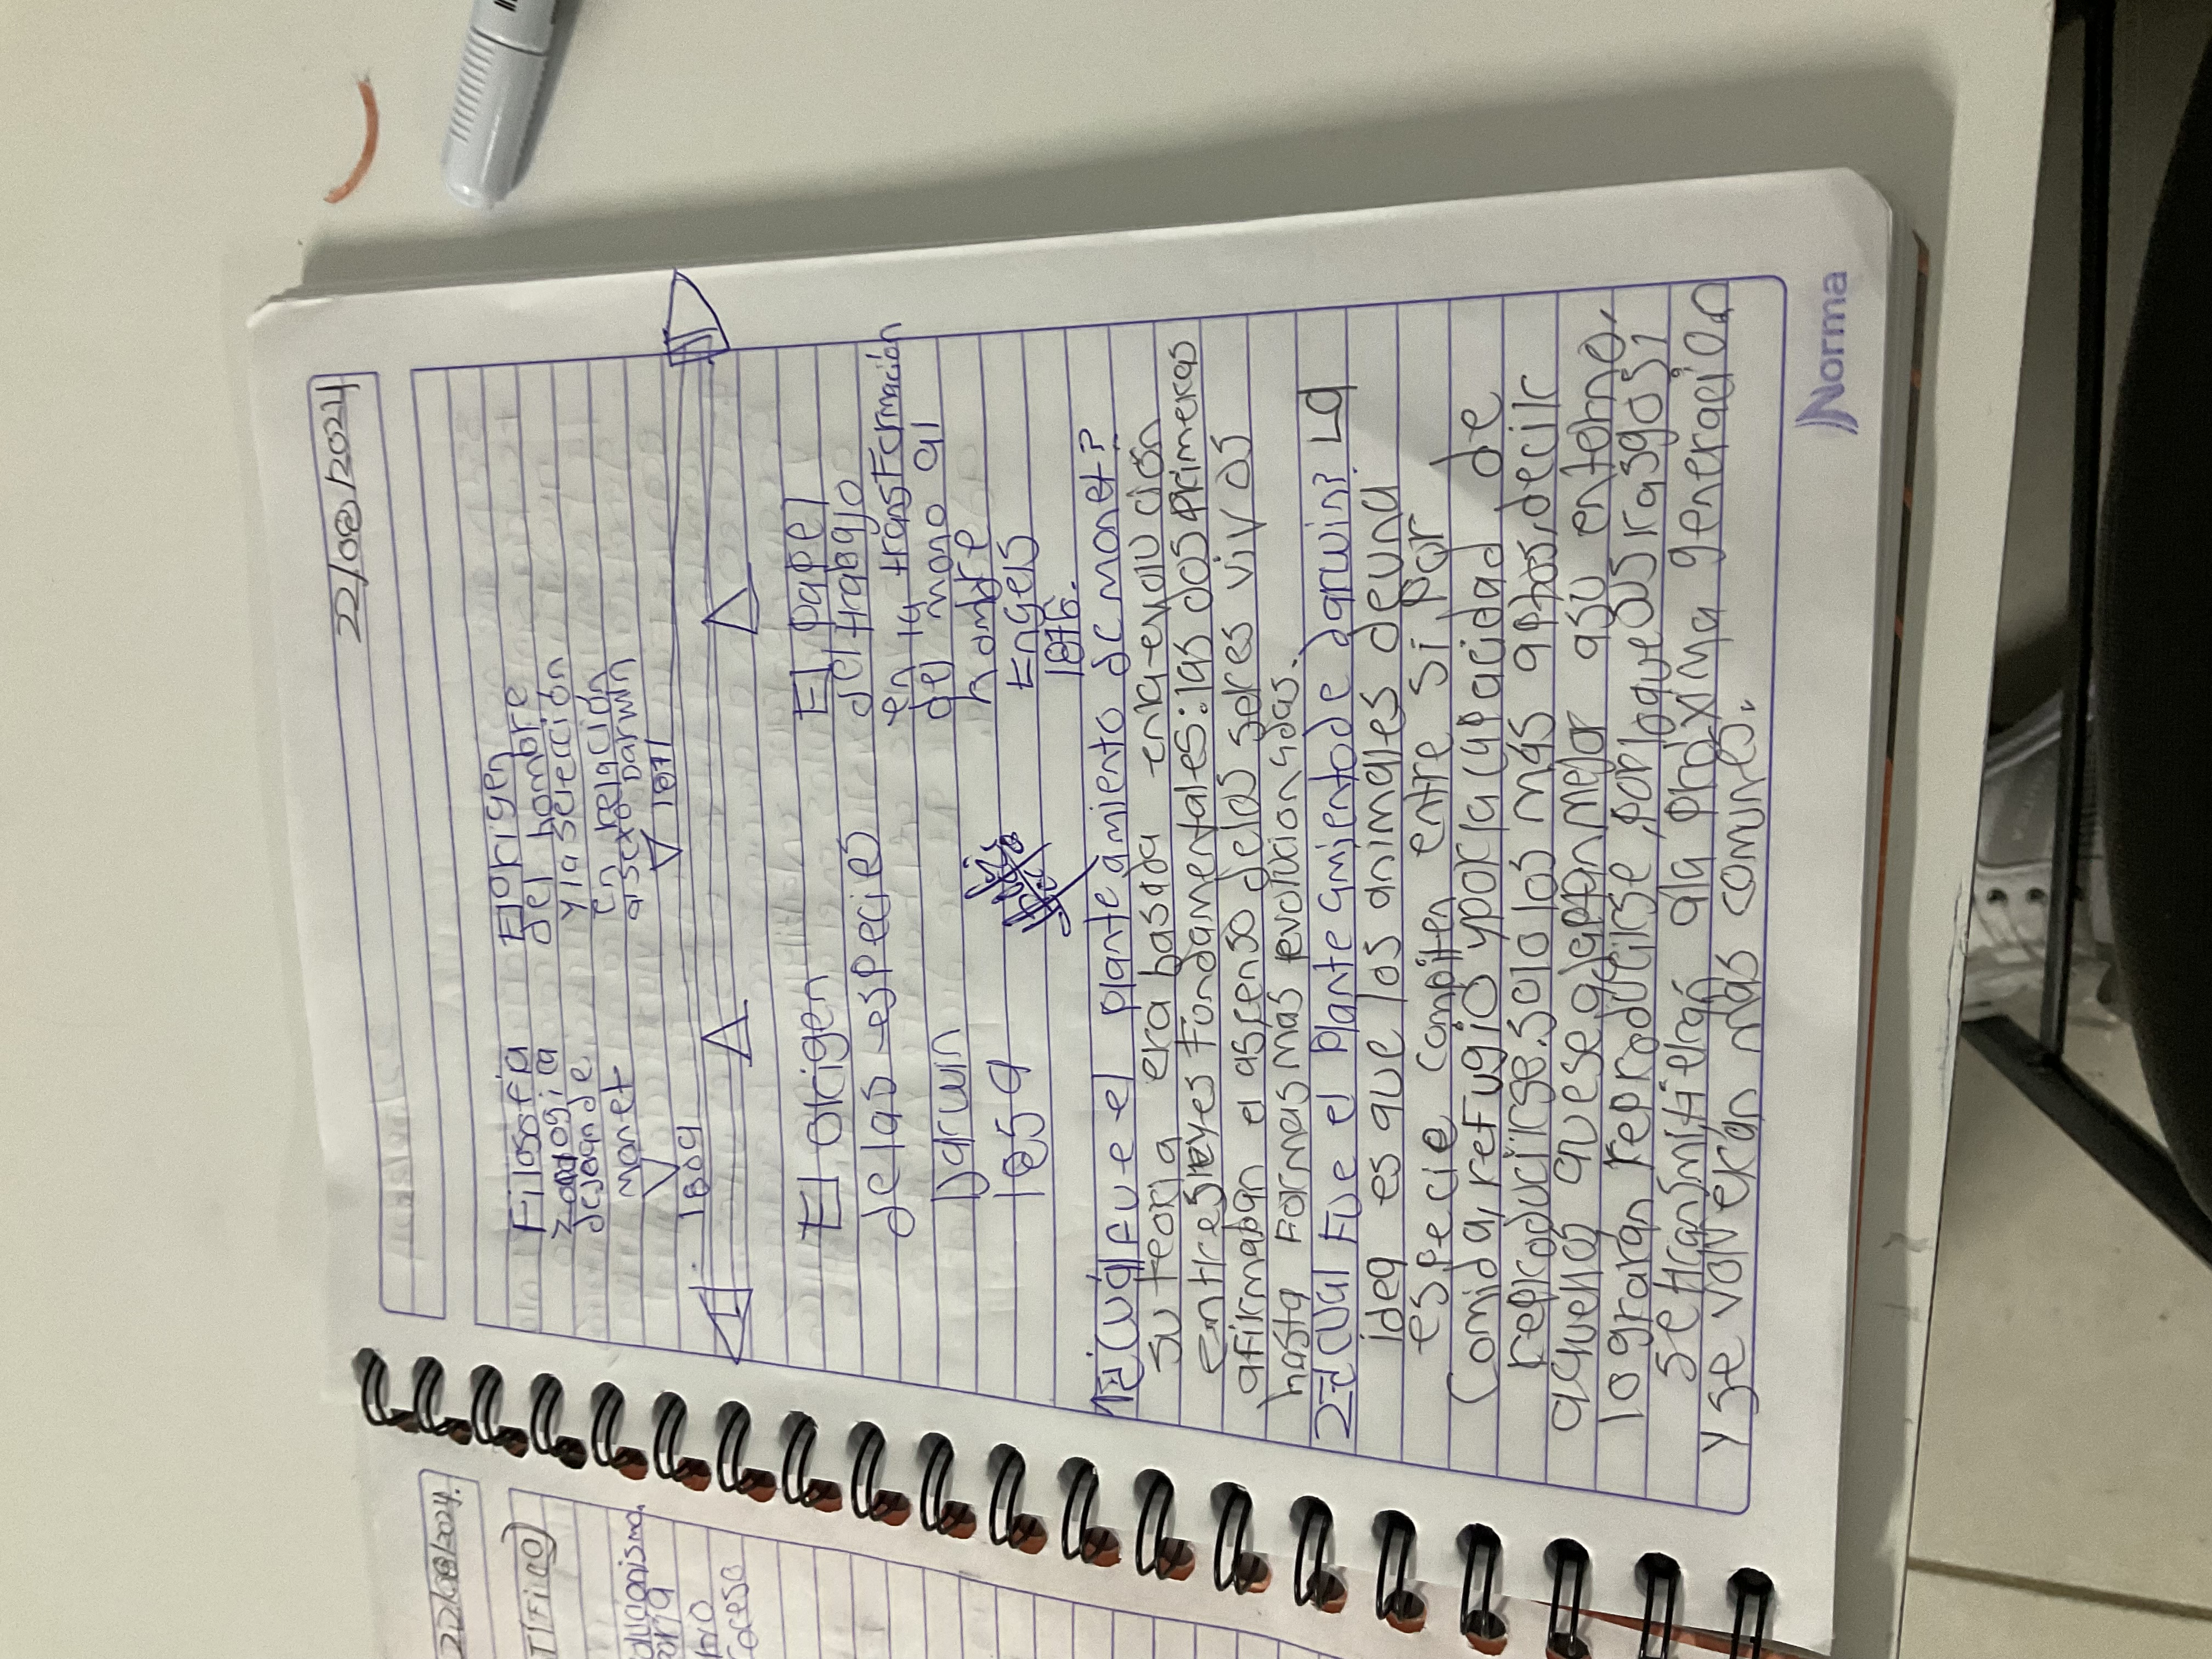 22/08/2024
Filosofía
zoologia
dejeande
monet
1809
El origen
del hombre
y la selección
en relación
al sexo Darwin
1871
El origen
de las especies
Darwin
1859
El papel
del trabajo
en la transFormación
del mono al
hombre
Engels
1876.
1- ¿Cuál fue el planteamiento de monet?
su teoria era basada en la evolución
entres leyes Fundamentales: las dos primeras
afirmaban el ascenso de los seres vivos
hasta Formas mas evolucionadas.
2- ¿Cual Fue el Planteamiento de darwin? La
idea es que los animales de una
especie compiten entre sí por
Comida, refugio y por la capacidad de
reproducirse. Solo los más aptos, decir
aquellos que se adapten mejor asu entorno,
lograran reproducirse, por lo que sus rasgos si
se transmitirán ala próxima generación
y se volverán más comunes.
Norma
22/08/2024.
TíFiCO
olucionismo
oria
nio
roceso